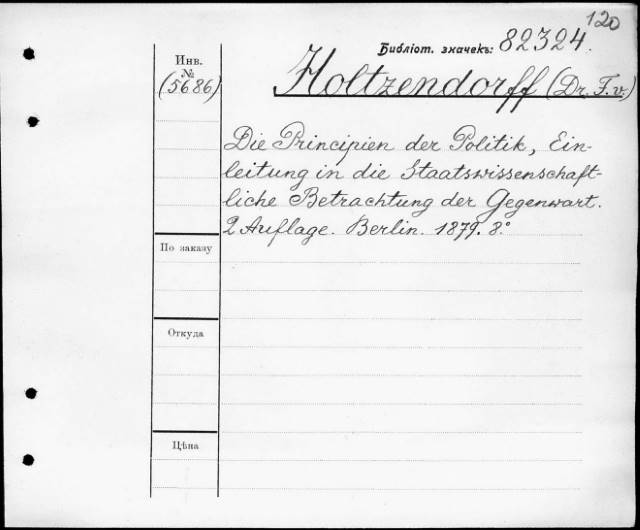 120
Библіот. значекъ: 82324.
Инв.
№
(5686)
Holtzendorff (Dr. F. v.)
Die Principien der Politik, Ein-
leitung in die Staatswissenschaft-
liche Betrachtung der Gegenwart.
2 Auflage. Berlin. 1879. 8°
По заказу
Откуда
Цѣна